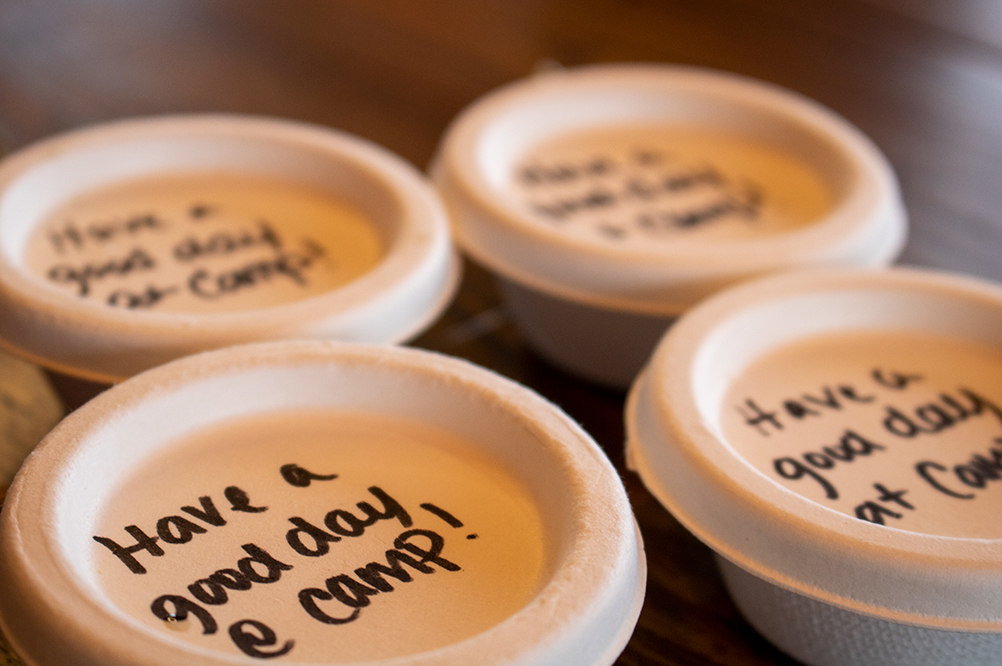 Have a
good day
at Camp!
Have a
Have a
good day
@ Camp!
Have a
good day
at Cam